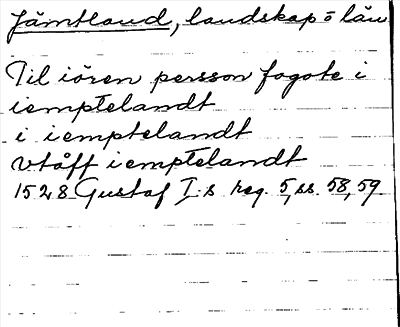 Jämtland, landskap o län
Til iören persson fogote i
iemptelandt
i iemptelandt
vtåff iemptelandt
1528 Gustaf I:s reg. 5, ss. 58, 59